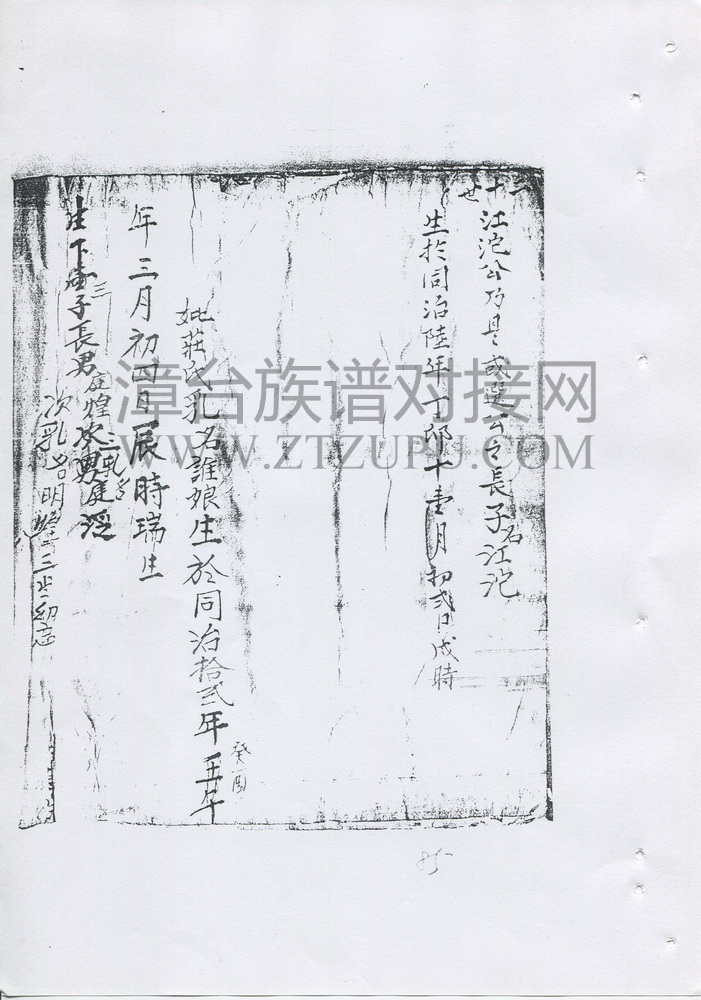 二十世
江沱公乃是或選公之長子名江沱
生於同治陸年丁卯十壹月初弍日戍時
妣莊氏乳名誰娘生於同治拾弍年壬午
癸酉
年三月初四日辰時瑞生
生下 三子長男庭煌次男庭
次乳名明 三 幼 
漳台族谱对接网
WWW.ZTZUPU.COM
85